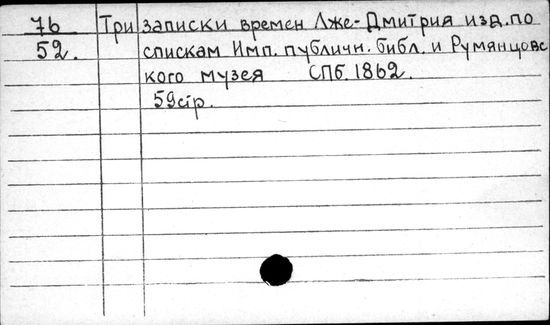 76 Три записки времен Лже-Дмитрия изд. по
52. спискам Имп. публичн. библ. и Румянцовс
кого музея СПб. 1862.
59стр.